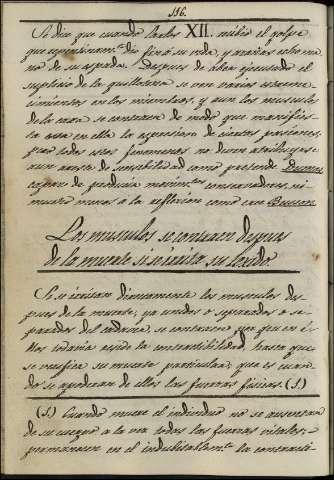 116.
Se dice que cuando Carlos XII. recibio el golpe
que repentinam.te dio fin á su vida, y
no de su espada. Despues de haber ejecutado el
suplicio de la guillotina se ven varios
cimientos en los miembros, y aun los musculos
de la cara se contraen de modo que manifies
ta en ella la espresion de ciertas pasiones,
pero todos estos fenomenos no deven atribuirse
aun de sensibilidad como pretende Dumas
capaz de producir movim.tos conservadores, ni
mucho menos á la reflexion como con Buisson.
Los musculos se contraen despues
de la muerte si se irrita su texido.
Si se irritan directamente los musculos des
pues de la muerte, ya unidos o separados o se
parados del cadaver, se contraeran por que en e
llos todavia reside la contractilidad, hasta que
se verifica su muerte particular, que es cuan
do se apoderan de ellos las fuerzas fisicas. (1.)
(1.) Cuando muere el individuo no se ausentan
de su cuerpo a la vez todas las fuerzas vitales:
permanecen en él indubitablem.te la contracti-